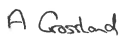 A Crossland